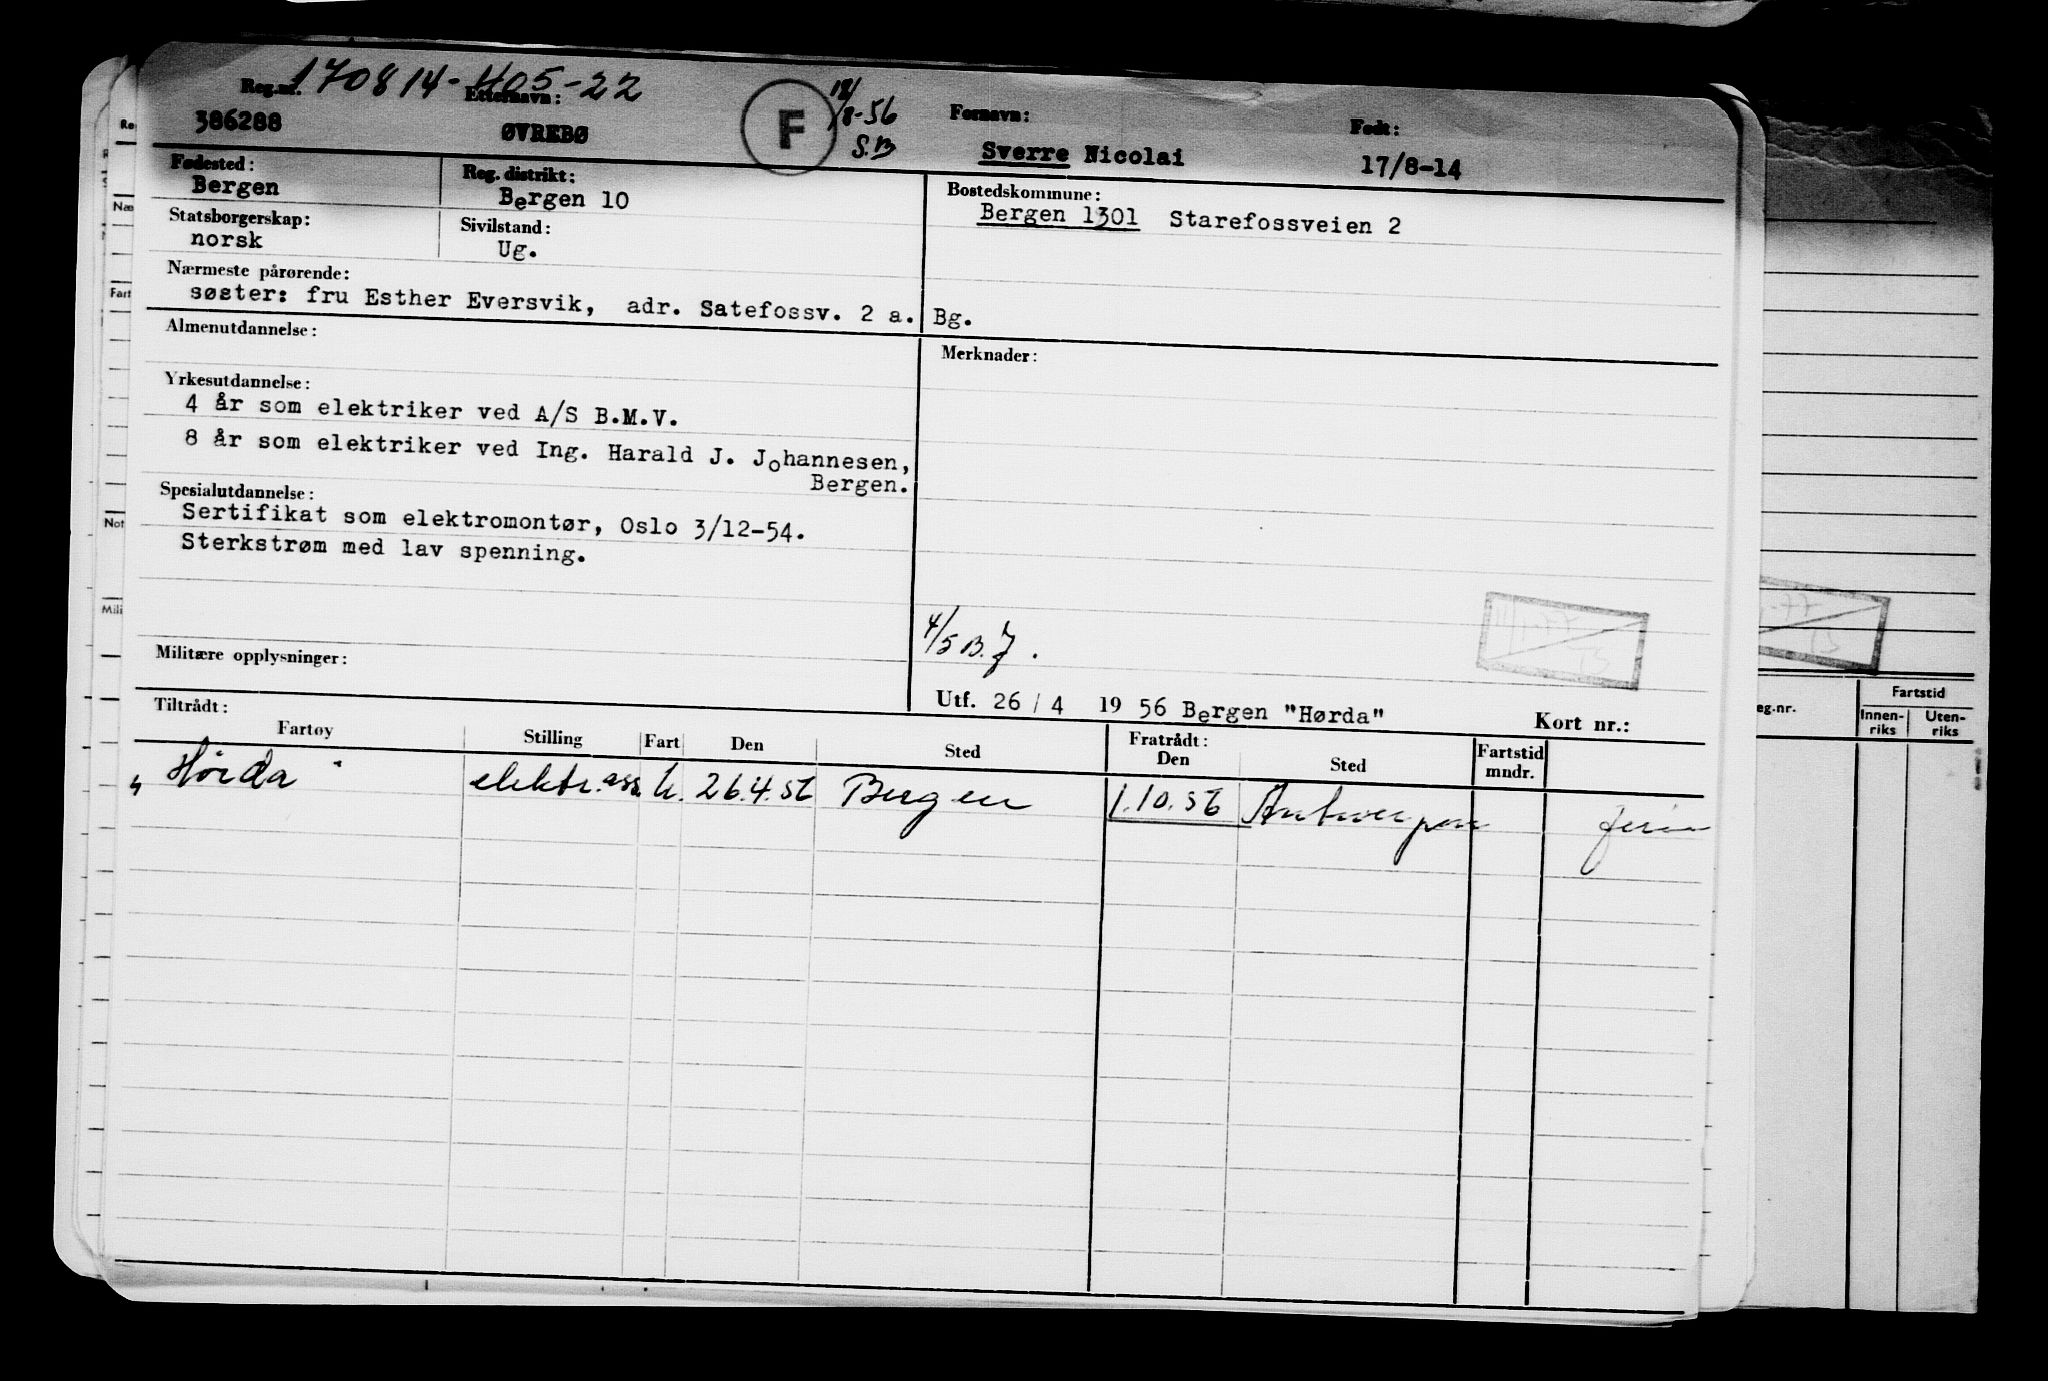 170814-405-22
Reg.nr. Etternavn: Fornavn: Født:
386288 ØVREBØ F 18/8-56 S.B Sverre Nicolai 17/8-14
Fødested: Reg. distrikt: Bostedskommune:
Bergen Bergen 10 Bergen 1301 Starefossveien 2
Statsborgerskap: Sivilstand:
norsk Ug.
Nærmeste pårørende:
søster: fru Esther Eversvik, adr. Satefossv. 2 a. Bg.
Almenutdannelse: Merknader:
Yrkesutdannelse:
4 år som elektriker ved A/S B.M.V.
8 år som elektriker ved Ing. Harald J. Johannesen,
Bergen.
Spesialutdannelse:
Sertifikat som elektromontør, Oslo 3/12-54.
Sterkstrøm med lav spenning.
4/5 B.J.
Militære opplysninger:
Utf. 26 / 4 19 56 Bergen "Hørda" Kort nr.:
Tiltrådt: Fratrådt:
Fartøy Stilling Fart Den Sted Den Sted Fartstid mndr.
"Hørda" elektr.ass. U. 26.4.56 Bergen 1.10.56 Antwerpen ferie
Fartstid
eg.nr. Innen-riks Uten-riks
Re
Næ
Fart
Not
Mili